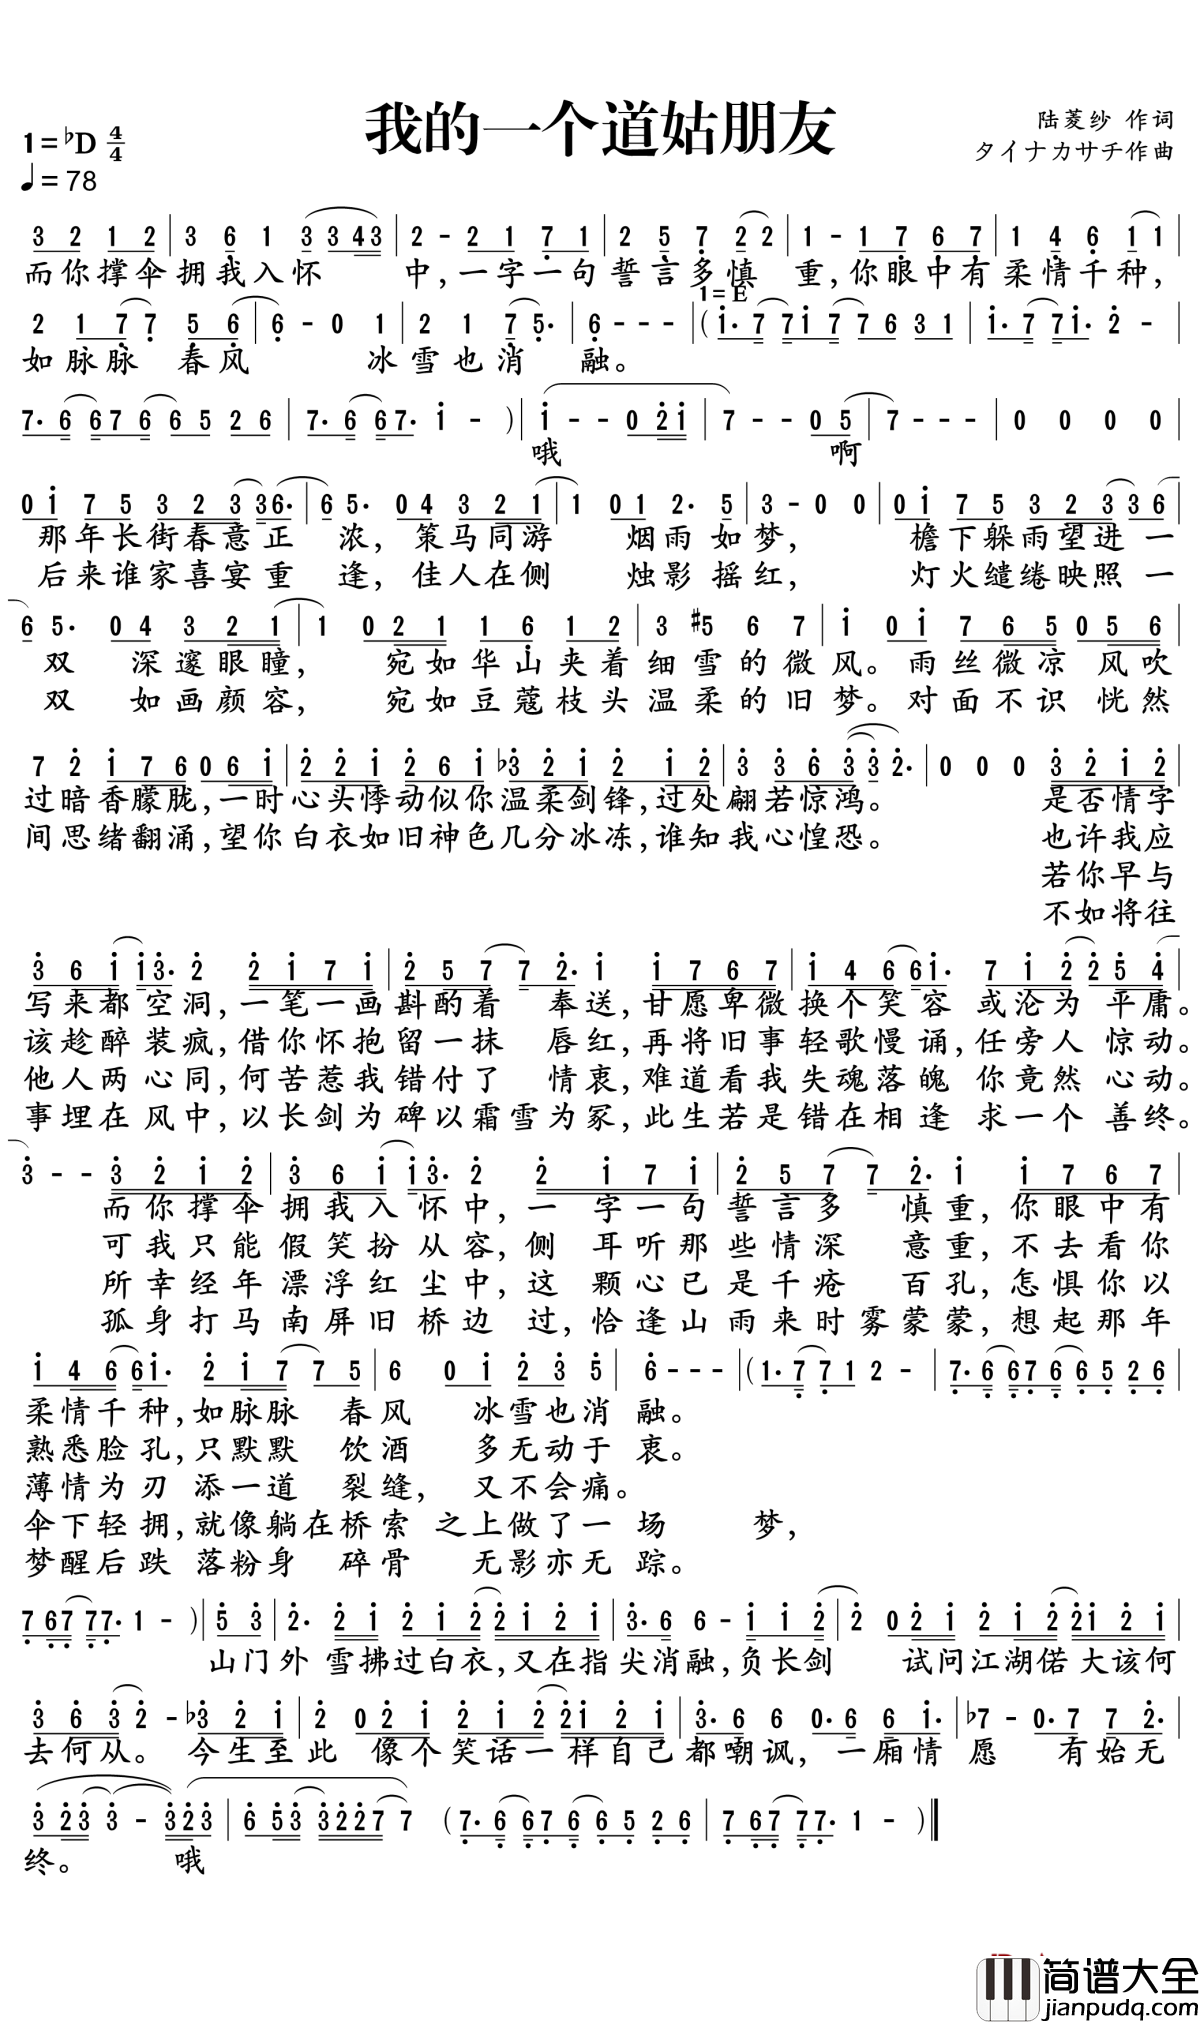 我的一个道姑朋友
1=♭D 4/4
♩=78
陆菱纱 作词
タイナカサチ作曲
3 2 1 2 | 3 6 1 3 3 4 3 | 2 - 2 1 7 1 | 2 5 7 2 2 | 1 - 1 7 6 7 | 1 4 6 1 1 |
而你撑伞拥我入怀 中,一字一句誓言多慎 重,你眼中有柔情千种,
1=E
2 1 7 7 5 6 | 6 - 0 1 | 2 1 7 5. | 6 - - - | (i. 7 7 i 7 7 6 3 1 | i. 7 7 i. 2 - |
如脉脉 春风 冰雪也消 融。
7. 6 6 7 6 6 5 2 6 | 7. 6 6 7. i - ) | i - - 0 2 i | 7 - - 0 5 | 7 - - - | 0 0 0 0 |
哦 啊
0 i 7 5 3 2 3 3 6. | 6 5. 0 4 3 2 1 | 1 0 1 2. 5 | 3 - 0 0 | 0 i 7 5 3 2 3 3 6 |
那年长街春意正 浓,策马同游 烟雨如梦, 檐下躲雨望进一
后来谁家喜宴重 逢,佳人在侧 烛影摇红, 灯火缱绻映照一
6 5. 0 4 3 2 1 | 1 0 2 1 1 6 1 2 | 3 #5 6 7 | i 0 i 7 6 5 0 5 6 |
双 深邃眼瞳, 宛如华山夹着细雪的微风。雨丝微凉 风吹
双 如画颜容, 宛如豆蔻枝头温柔的旧梦。对面不识 恍然
7 2 i 7 6 0 6 i | 2 2 i 2 6 i ♭3 2 i 2 i 2 | 3 3 6 3 3 2. | 0 0 0 3 2 i 2 |
过暗香朦胧,一时心头悸动似你温柔剑锋,过处翩若惊鸿。 是否情字
间思绪翻涌,望你白衣如旧神色几分冰冻,谁知我心惶恐。 也许我应
若你早与
不如将往
3 6 i i 3. 2 2 i 7 i | 2 5 7 7 2. i i 7 6 7 | i 4 6 6 i. 7 i 2 2 5 4 |
写来都空洞,一笔一画斟酌着 奉送,甘愿卑微换个笑容 或沦为 平庸。
该趁醉装疯,借你怀抱留一抹 唇红,再将旧事轻歌慢诵,任旁人 惊动。
他人两心同,何苦惹我错付了 情衷,难道看我失魂落魄 你竟然 心动。
事埋在风中,以长剑为碑以霜雪为冢,此生若是错在相逢 求一个 善终。
3 - - 3 2 i 2 | 3 6 i i 3. 2 2 i 7 i | 2 5 7 7 2. i i 7 6 7 |
而你撑伞拥我入怀中,一字一句誓言多 慎重,你眼中有
可我只能假笑扮从容,侧耳听那些情深 意重,不去看你
所幸经年漂浮红尘中,这颗心已是千疮 百孔,怎惧你以
孤身打马南屏旧桥边 过,恰逢山雨来时雾蒙蒙,想起那年
i 4 6 6 i. 2 i 7 7 5 | 6 0 i 2 3 5 | 6 - - - | (1. 7 7 1 2 - | 7. 6 6 7 6 6 5 2 6 |
柔情千种,如脉脉 春风 冰雪也消 融。
熟悉脸孔,只默默 饮酒 多无动于 衷。
薄情为刃 添一道 裂缝, 又不会痛。
伞下轻拥,就像躺在桥索 之上做了一 场 梦,
梦醒后跌 落粉身 碎骨 无影亦无 踪。
7 6 7 7 7. 1 - ) | 5 3 | 2. 2 i 2 i 2 2 i 2 i | 3. 6 6 - i i 2 | 2 0 2 i 2 i 2 2 i 2 i |
山门外 雪拂过白衣,又在指尖消融,负长剑 试问江湖偌大该何
3 6 3 2 - ♭3 2 i | 2 0 2 i 2 i 2 2 i 2 i | 3. 6 6 0. 6 6 i. | ♭7 - 0. 7 7 2. |
去何从。 今生至此 像个笑话一样自己都嘲讽,一厢情 愿 有始无
3 2 3 3 - 3 2 3 | 6 5 3 3 2 2 7 7 (7. 6 6 7 6 6 5 2 6 | 7 6 7 7 7. 1 - ) ‖
终。 哦
简谱大全
jianpudq.com